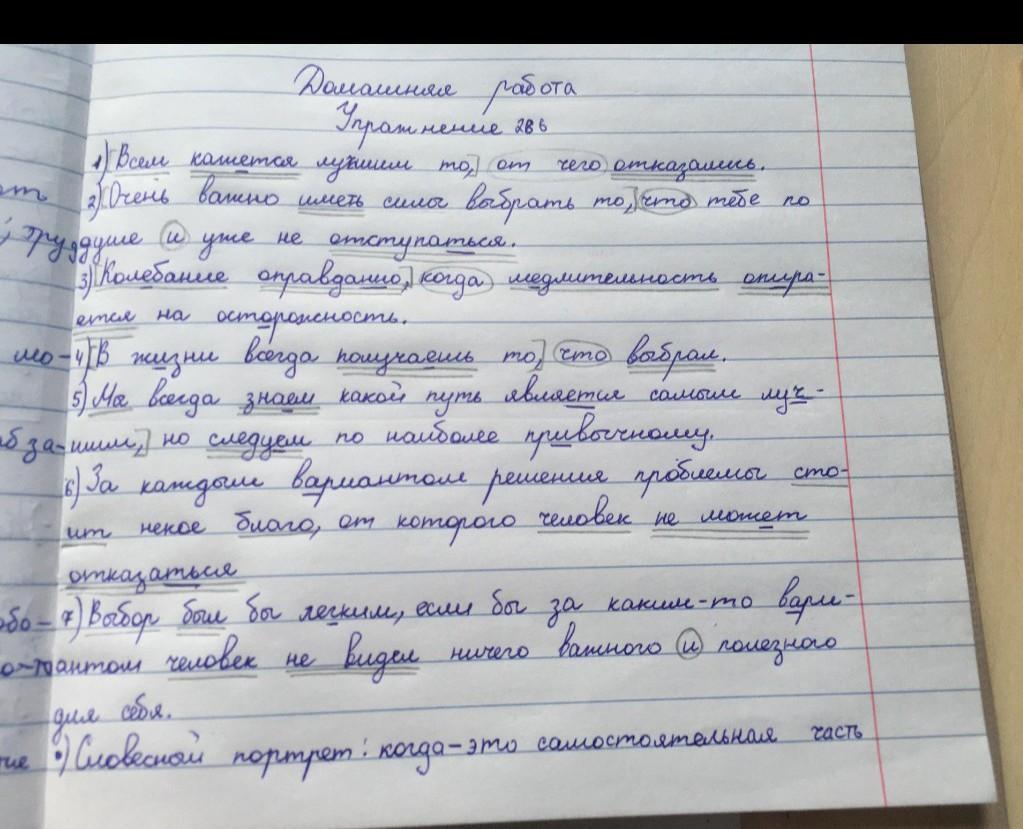 Домашняя работа
Упражнение 286
1) [Всем кажется лучшим то,] от чего отказались.
от 2) [Очень важно иметь силы выбрать то,] что тебе по
душе и уже не отступаться.
3) [Колебание оправдано,] когда медлительность опира-
ется на осторожность.
мо- 4) [В жизни всегда получаешь то,] что выбрал.
5) Мы всегда знаем какой путь является самым луч-
за- шим,] но следуем по наиболее привычному.
6) За каждым вариантом решения проблемы сто-
ит некое благо, от которого человек не может
отказаться
7) Выбор был бы легким, если бы за каким-то вари-
антом человек не видел ничего важного и полезного
для себя.
•) Словесный портрет: когда-это самостоятельная часть